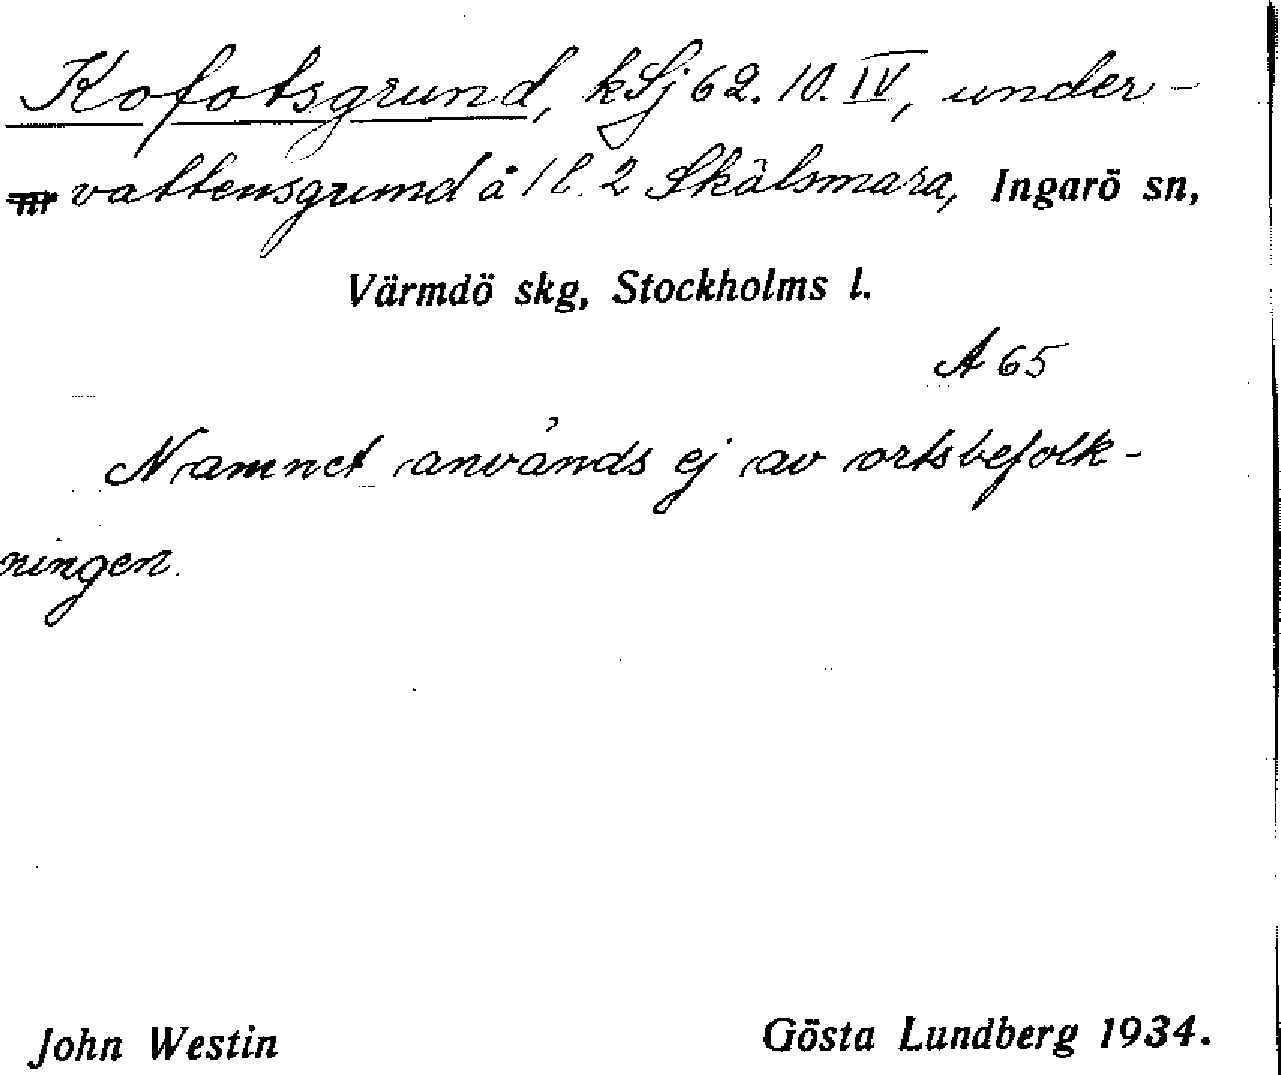 Kofotsgrund, kSj 62. 10. IV, under-
nr vattensgrund å 1 l. 2 Skälsmara, Ingarö sn,
Värmdö skg, Stockholms l.
A 65
Namnet används ej av ortsbefolk-
ningen.
John Westin Gösta Lundberg 1934.